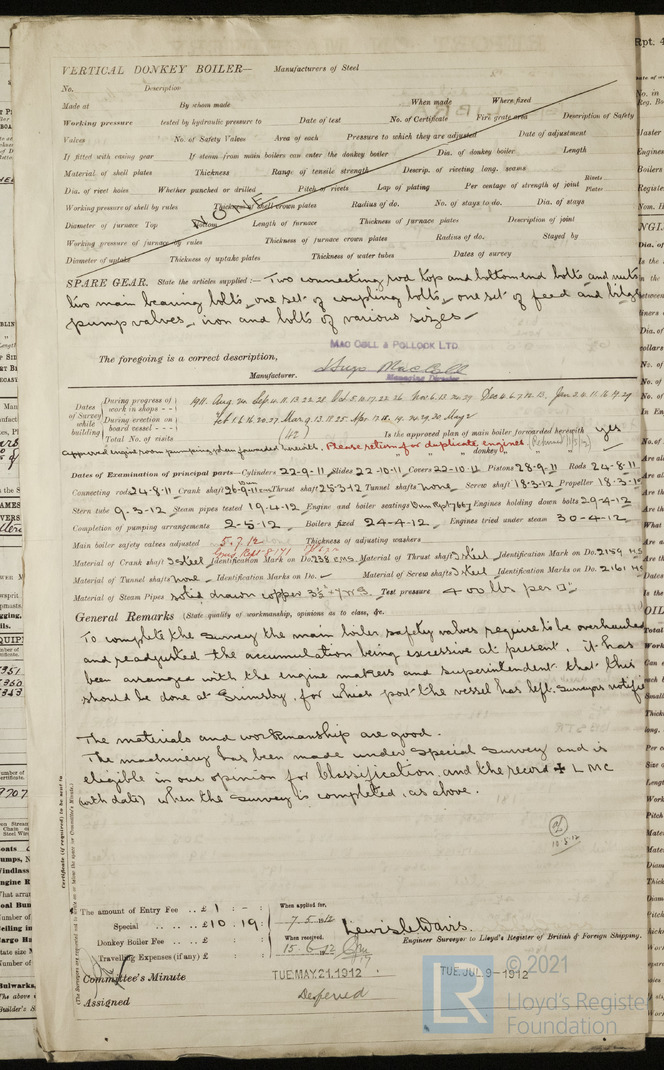 VERTICAL DONKEY BOILER— Manufacturers of Steel
No. Description
Made at By whom made When made Where fixed
Working pressure tested by hydraulic pressure to Date of test No. of Certificate Fire grate area Description of Safety
Valves No. of Safety Valves Area of each Pressure to which they are adjusted Date of adjustment
If fitted with easing gear If steam from main boilers can enter the donkey boiler Dia. of donkey boiler Length
Material of shell plates Thickness Range of tensile strength Descrip. of riveting long. seams
Dia. of rivet holes Whether punched or drilled Pitch of rivets Lap of plating Per centage of strength of joint Rivets Plates
Working pressure of shell by rules Thickness of shell crown plates Radius of do. No. of stays to do. Dia. of stays
NONE
Diameter of furnace Top Bottom Length of furnace Thickness of furnace plates Description of joint
Working pressure of furnace by rules Thickness of furnace crown plates Radius of do. Stayed by
Diameter of uptake Thickness of uptake plates Thickness of water tubes Dates of survey
SPARE GEAR. State the articles supplied:— Two connecting rod top and bottom end bolts and nuts
two main bearing bolts, one set of coupling bolts, one set of feed and bilge
pump valves, iron and bolts of various sizes —
MAC COLL & POLLOCK LTD.
The foregoing is a correct description,
Hugo MacColl
Manufacturer. Managing Director
Dates of Survey while building
During progress of work in shops - - 1911. Aug. 24. Sep 4. 11. 13. 22. 28. Oct 5. 10. 17. 22. 26. Nov. 6. 13. 24. 29. Dec. 4. 6. 7. 12. 13. Jan 2. 4. 11. 16. 19. 29
During erection on board vessel - - - Feb 1. 6. 16. 20. 27. Mar. 9. 13. 18. 25 Apr. 17. 18. 19. 24. 29. 30. May 2
Total No. of visits (42) Is the approved plan of main boiler forwarded herewith yes
Approved engine room pumping plan forwarded herewith. Please return for duplicate engines. " " donkey " "
Dates of Examination of principal parts—Cylinders 22-9-11 Slides 22-10-11 Covers 22-10-11 Pistons 28-9-11 Rods 24-8-11
Connecting rods 24-8-11 Crank shaft 26-9-11 Thrust shaft 25-3-12 Tunnel shafts none Screw shaft 18-3-12 Propeller 18-3-12
Stern tube 9-3-12 Steam pipes tested 19-4-12 Engine and boiler seatings Engines holding down bolts 29-4-12
Completion of pumping arrangements 2-5-12 Boilers fixed 24-4-12 Engines tried under steam 30-4-12
Main boiler safety valves adjusted 5.7.12 Thickness of adjusting washers
Material of Crank shaft Steel Identification Mark on Do. 238 Material of Thrust shaft Steel Identification Mark on Do. 2159
Material of Tunnel shafts none Identification Marks on Do. — Material of Screw shafts Steel Identification Marks on Do. 2161
Material of Steam Pipes solid drawn copper Test pressure 400 lbs per □"
General Remarks (State quality of workmanship, opinions as to class, &c.
To complete the survey the main boiler safety valves require to be overhauled
and readjusted the accumulation being excessive at present. it has
been arranged with the engine makers and superintendent that this
should be done at Grimsby, for which port the vessel has left. Surveyors notified
The materials and workmanship are good.
The machinery has been made under special survey and is
eligible in our opinion for classification and the record ✠ L MC
(with date) when the survey is completed, as above.
10.5.12
Certificate (if required) to be sent to
(The Surveyors are requested not to write on or below the space for Committee's Minute.)
The amount of Entry Fee .. £ 1 : - : When applied for,
Special .. .. £ 10 : 19 : 7.5.1912
Donkey Boiler Fee .. £ : : When received,
Travelling Expenses (if any) £ : : 15.6.12
Lewis C Davis.
Engineer Surveyor to Lloyd's Register of British & Foreign Shipping.
Committee's Minute TUE. MAY. 21. 1912 TUE. JUL. 9-1912
Assigned Deferred
© 2021
Lloyd's Register
Foundation